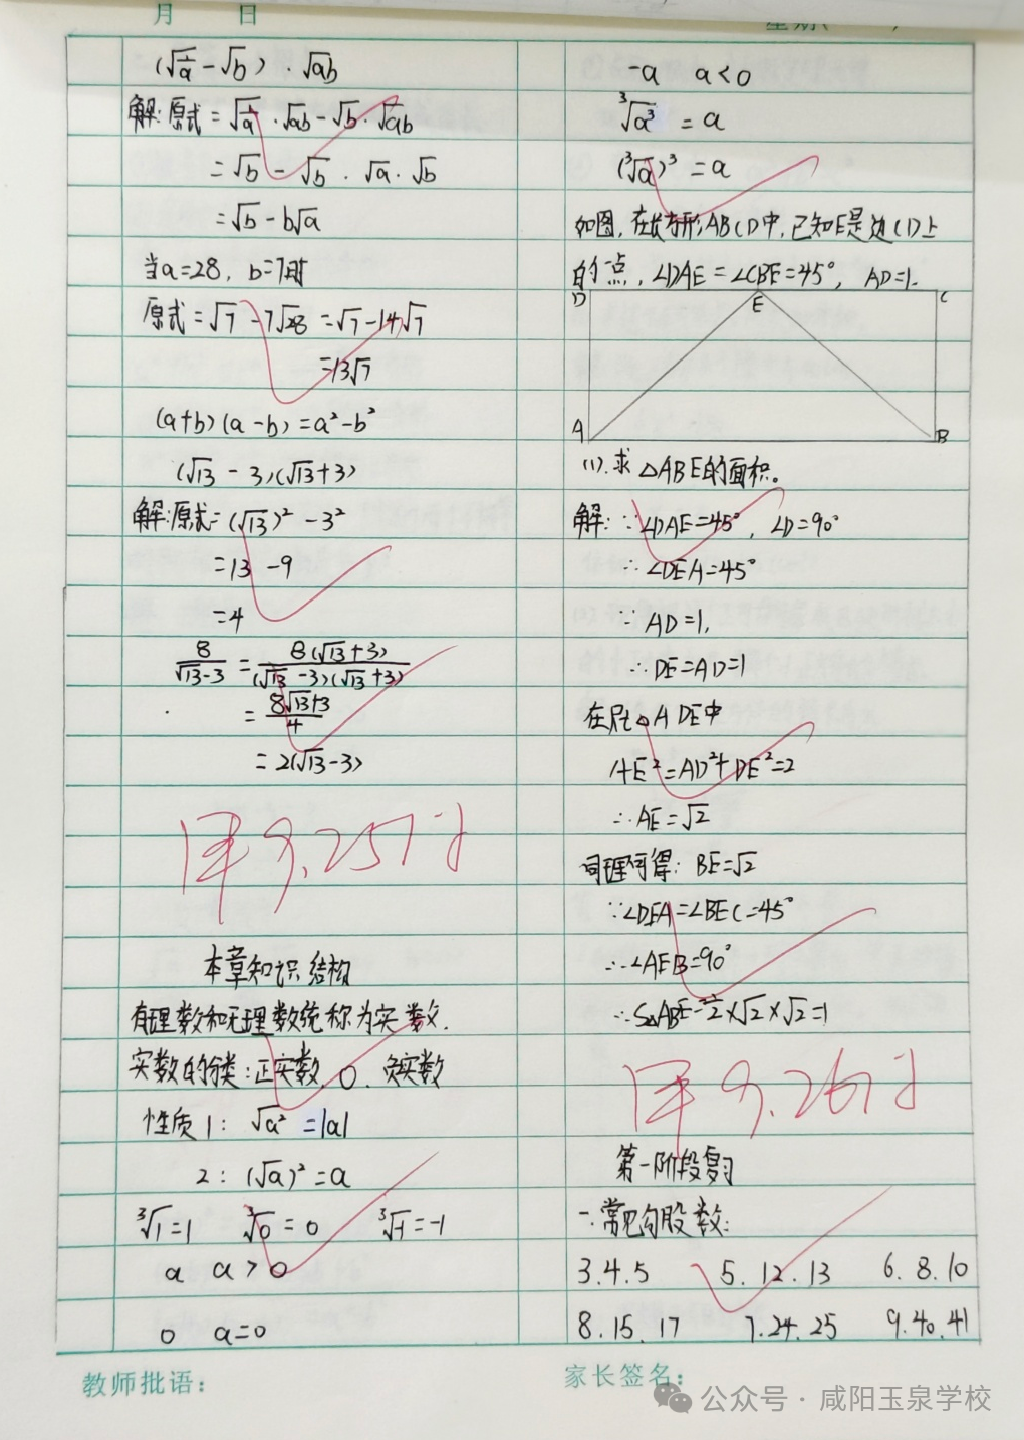 月 日
(√1/a - √b) · √ab
解:原式 = √1/a · √ab - √b · √ab
= √b - √b · √a · √b
= √b - b√a
当a=28, b=7时
原式 = √7 - 7√28 = √7 - 14√7
= 13√7
(a+b)(a-b) = a² - b²
(√13 - 3)(√13+3)
解:原式 = (√13)² - 3²
= 13 - 9
= 4
8/(√13-3) = 8(√13+3)/((√13-3)(√13+3))
= 8√13+3/4
= 2(√13-3)
9.25
本章知识结构
有理数和无理数统称为实数.
实数的分类:正实数, 0, 负实数
性质1: √a² = |a|
2: (√a)² = a
³√1 = 1 ³√0 = 0 ³√-1 = -1
a a > 0
0 a=0
教师批语:
星期
-a a<0
³√a³ = a
(³√a)³ = a
如图,在长方形ABCD中,已知E是边CD上
的点,∠DAE=∠CBE=45°, AD=1.
D E C
A B
(1).求△ABE的面积。
解:∵∠DAE=45°, ∠D=90°
∴∠DEA=45°
∵AD=1,
∴DE=AD=1
在Rt△ADE中
AE²=AD²+DE²=2
∴AE=√2
同理可得: BE=√2
∵∠DEA=∠BEC=45°
∴∠AEB=90°
∴S△ABE=1/2×√2×√2=1
9.26
第一阶段复习
一.常见勾股数:
3.4.5 5.12.13 6.8.10
8.15.17 7.24.25 9.40.41
家长签名:
公众号·咸阳玉泉学校